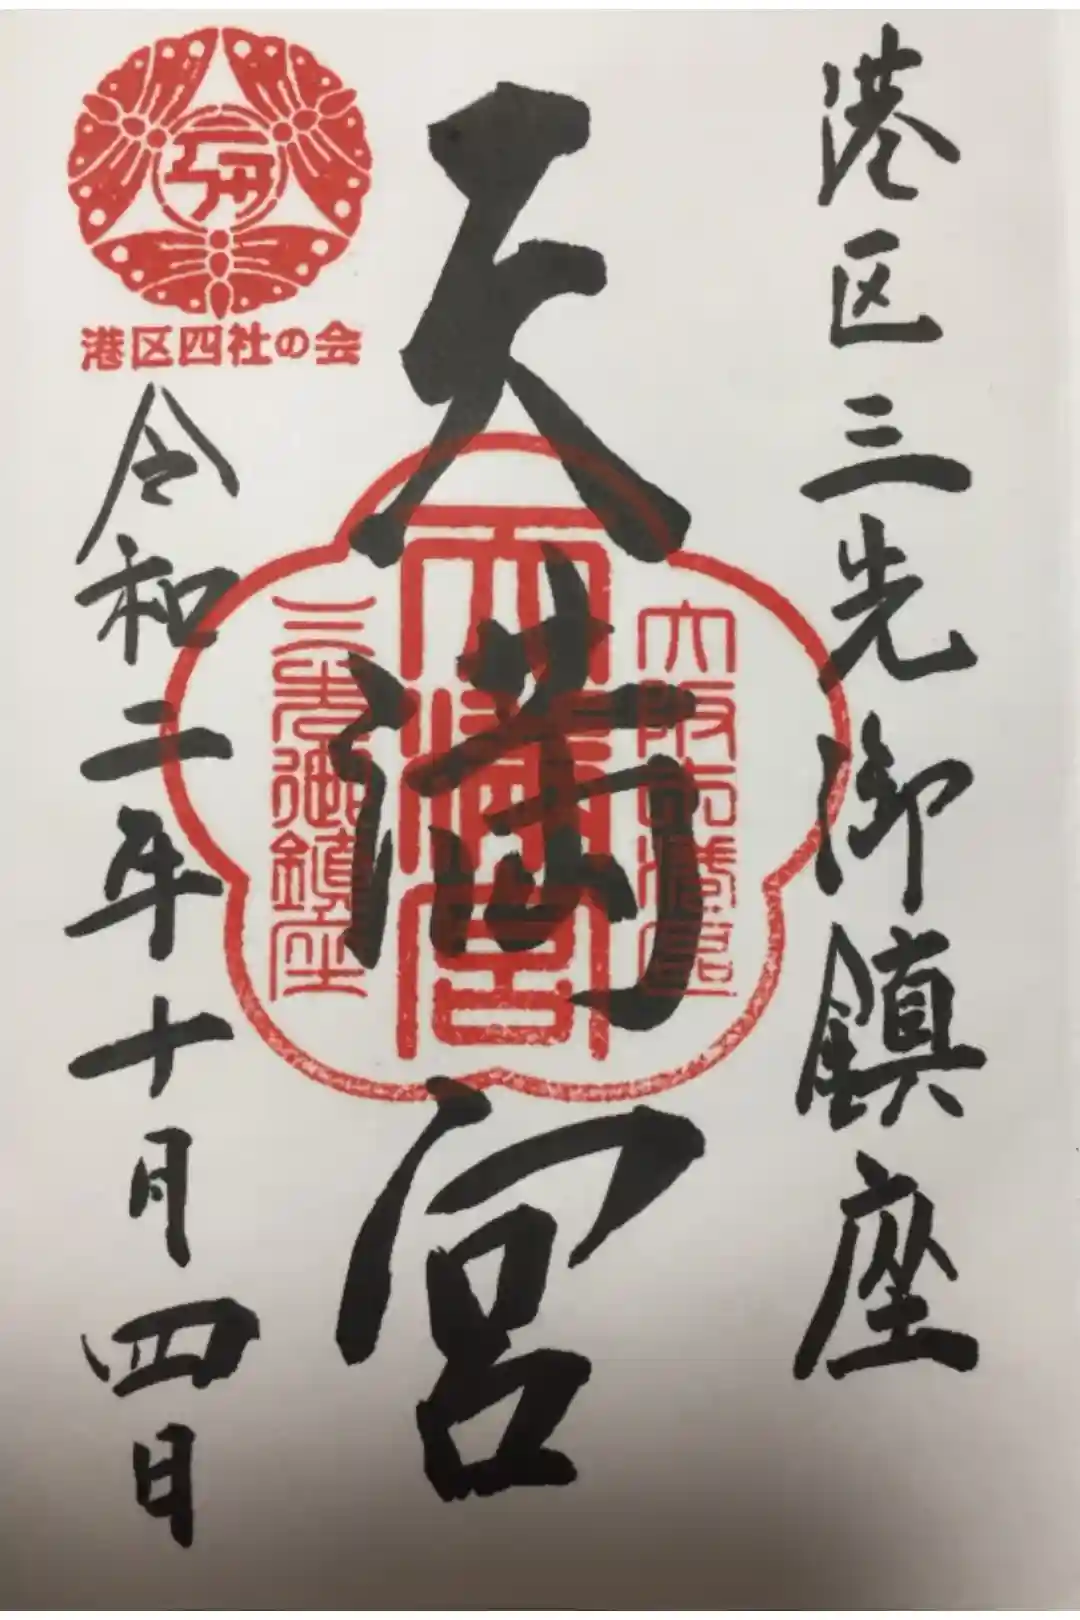 港区三先御鎮座
天満宮
大阪市港区
天満宮
三先御鎮座
港区四社の会
令和二年十月四日